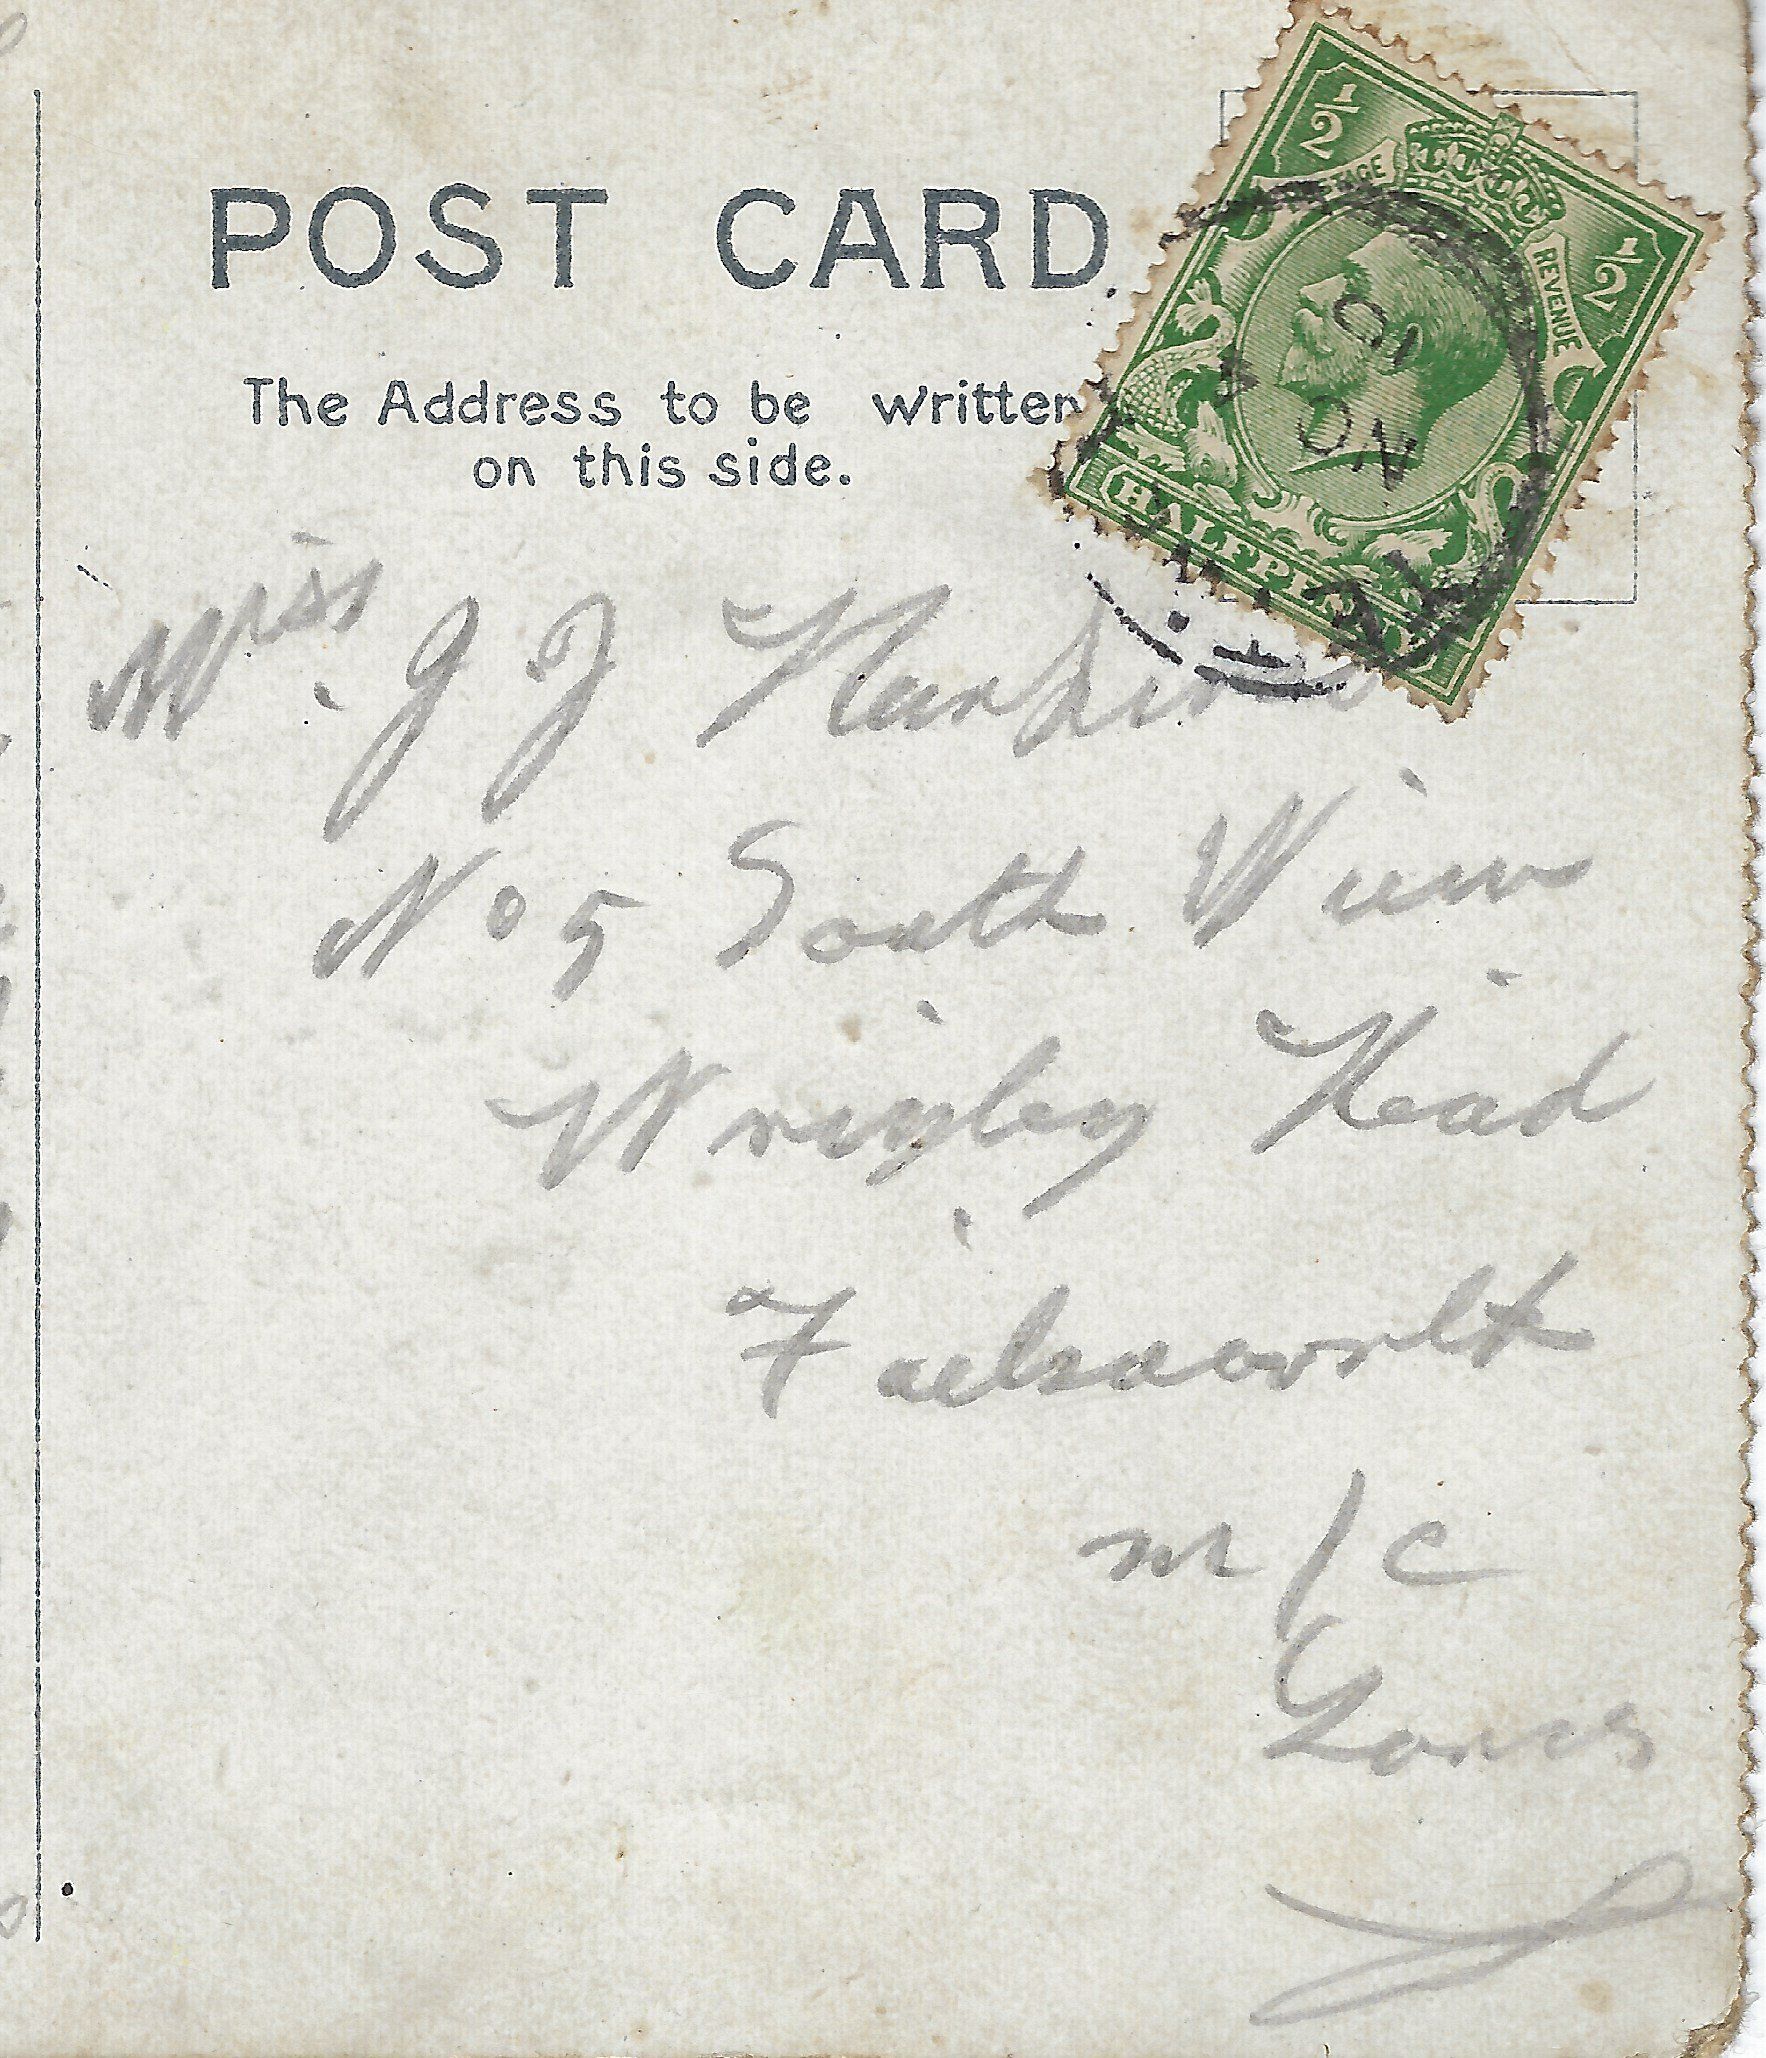 POST CARD
The Address to be written
on this side.
½ POSTAGE REVENUE ½
HALFPENNY
10
NO
Miss J J
No 5 South View
Wrigley Head
Failsworth
m/c
Lancs